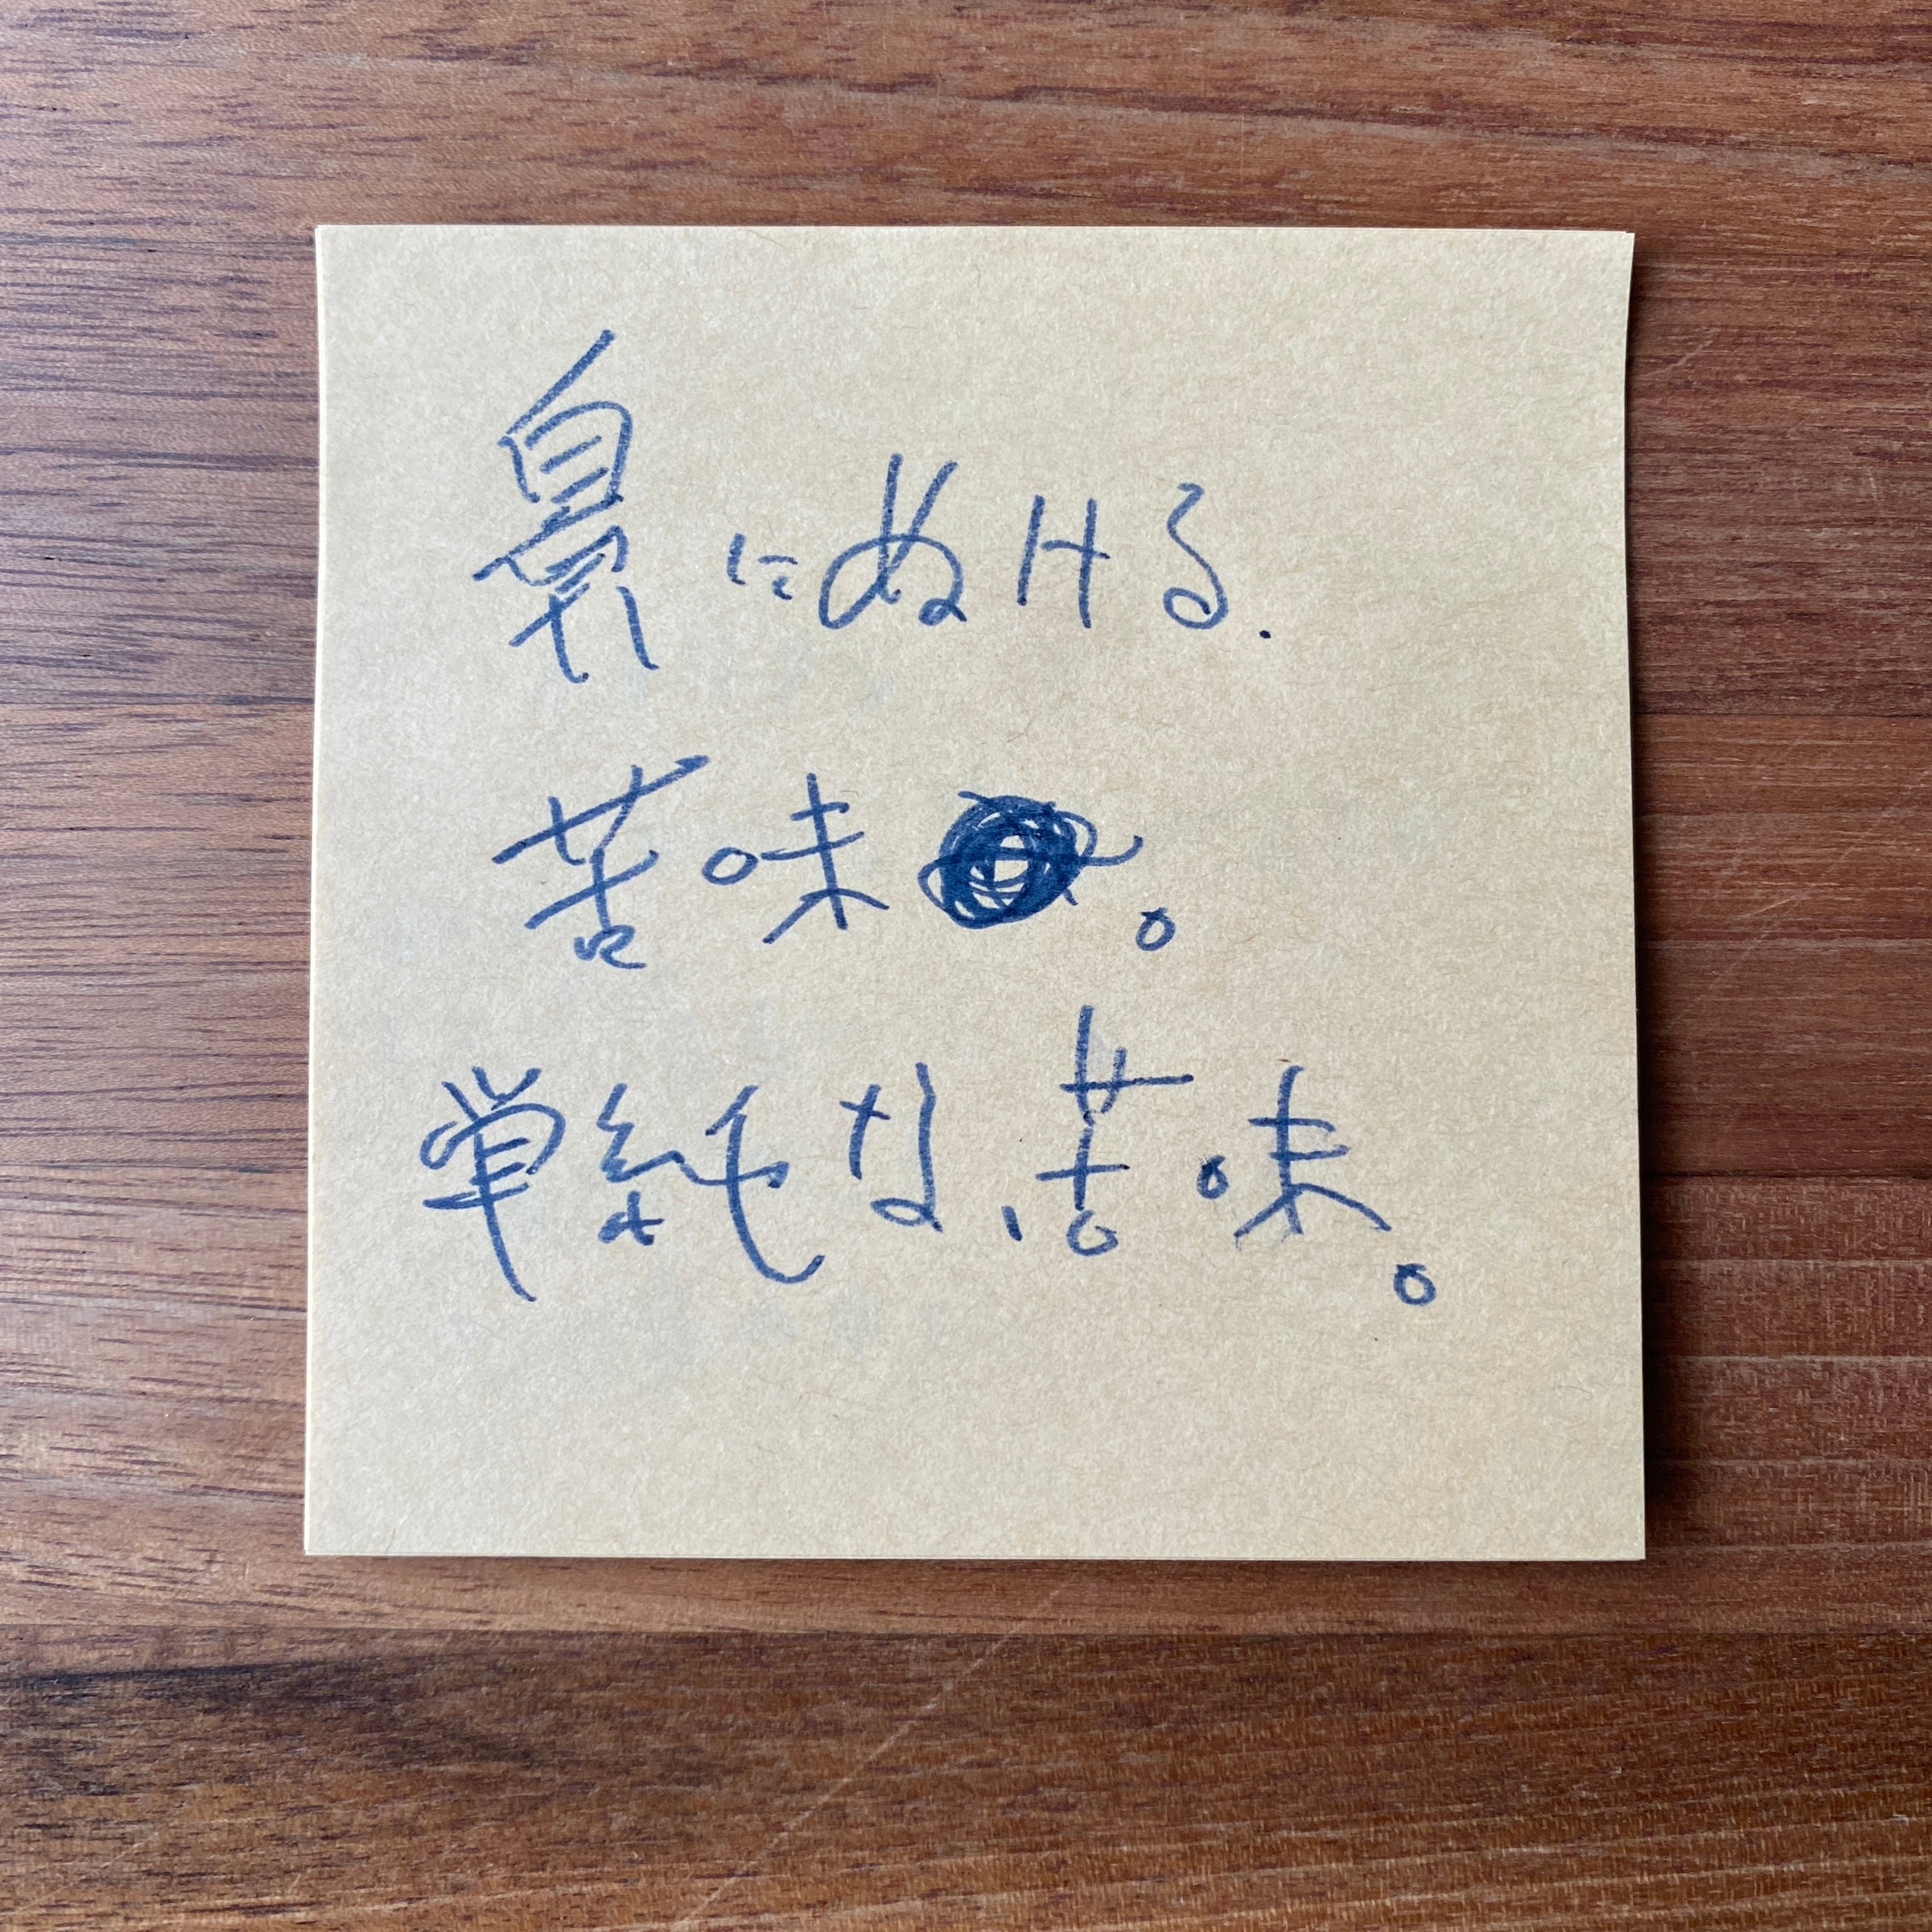 鼻にぬける.
苦味。
単純な、苦味。